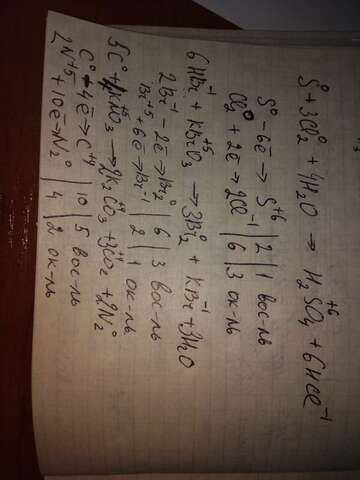 S⁰ + 3Cl₂⁰ + 4H₂O → H₂S⁺⁶O₄ + 6HCl⁻¹
S⁰ - 6ē → S⁺⁶ | 2 | 1 вос-ль
Cl₂⁰ + 2ē → 2Cl⁻¹ | 6 | 3 ок-ль
6HBr⁻¹ + KBr⁺⁵O₃ → 3Br₂⁰ + KBr⁻¹ + 3H₂O
2Br⁻¹ - 2ē → Br₂⁰ | 6 | 3 вос-ль
Br⁺⁵ + 6ē → Br⁻¹ | 2 | 1 ок-ль
5C⁰ + N⁺⁵O₃ → 2K₂C⁺⁴O₃ + 3C⁺⁴O₂ + 2N₂⁰
C⁰ - 4ē → C⁺⁴ | 10 | 5 вос-ль
2N⁺⁵ + 10ē → N₂⁰ | 4 | 2 ок-ль